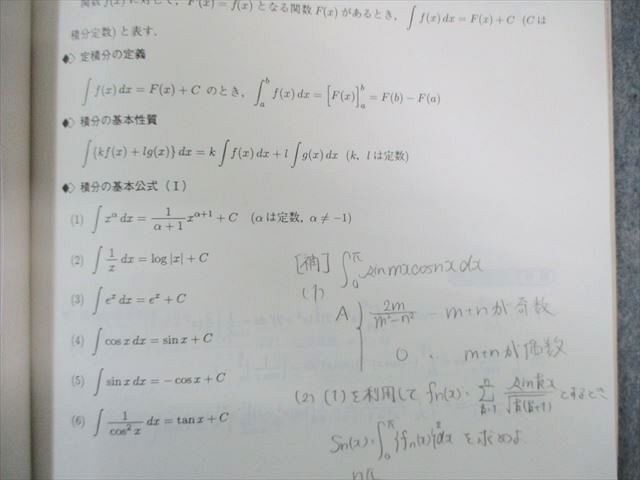 関数 f(x) に対して, F'(x) = f(x) となる関数 F(x) があるとき, ∫ f(x) dx = F(x) + C (C は
積分定数) と表す.
◆◇ 定積分の定義
∫ f(x) dx = F(x) + C のとき, ∫_a^b f(x) dx = [F(x)]_a^b = F(b) − F(a)
◆◇ 積分の基本性質
∫ {kf(x) + lg(x)} dx = k ∫ f(x) dx + l ∫ g(x) dx (k, l は定数)
◆◇ 積分の基本公式 (I)
(1) ∫ x^α dx = 1/(α+1) x^{α+1} + C (α は定数, α ≠ −1)
(2) ∫ 1/x dx = log|x| + C
(3) ∫ e^x dx = e^x + C
(4) ∫ cos x dx = sin x + C
(5) ∫ sin x dx = −cos x + C
(6) ∫ 1/cos²x dx = tan x + C
[補] ∫_0^π sin mx cos nx dx
(1)
A { 2m/(m²−n²) − m+n が奇数
0 , m+n が偶数
(2) (1) を利用して fn(x) = Σ_{k=1}^n sin kx/√(k(k+1)) とするとき
Sn(x) = ∫_0^π {fn(x)}² dx を求めよ